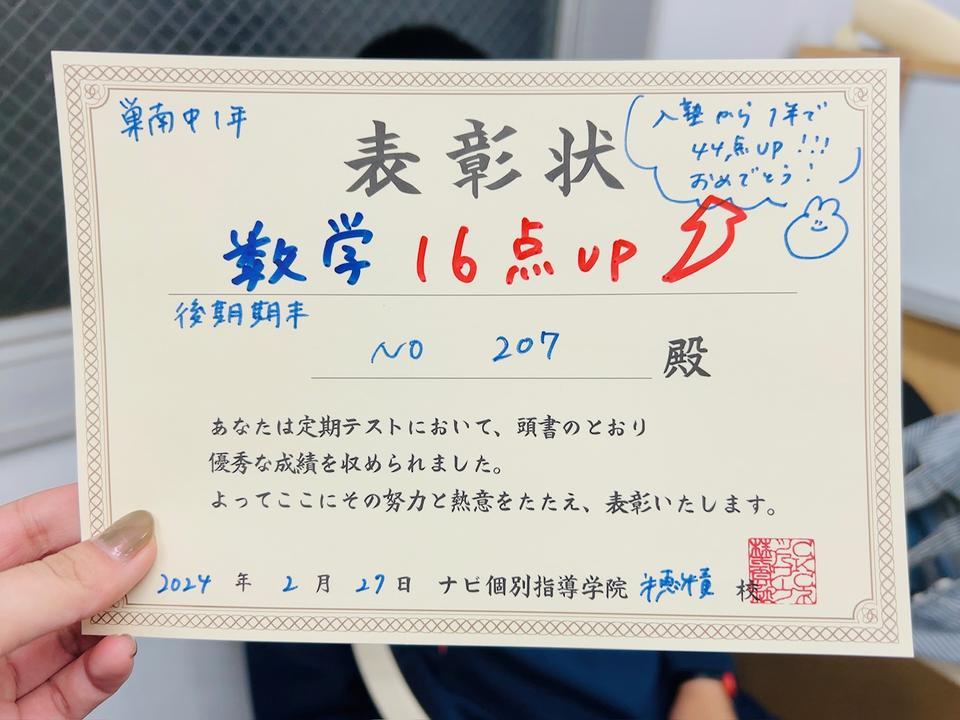 巣南中1年
入塾から1年で
44点UP!!!
おめでとう!
表彰状
数学 16点UP
後期期末
NO 207 殿
あなたは定期テストにおいて、頭書のとおり
優秀な成績を収められました。
よってここにその努力と熱意をたたえ、表彰いたします。
2024年2月27日 ナビ個別指導学院 穂積 校